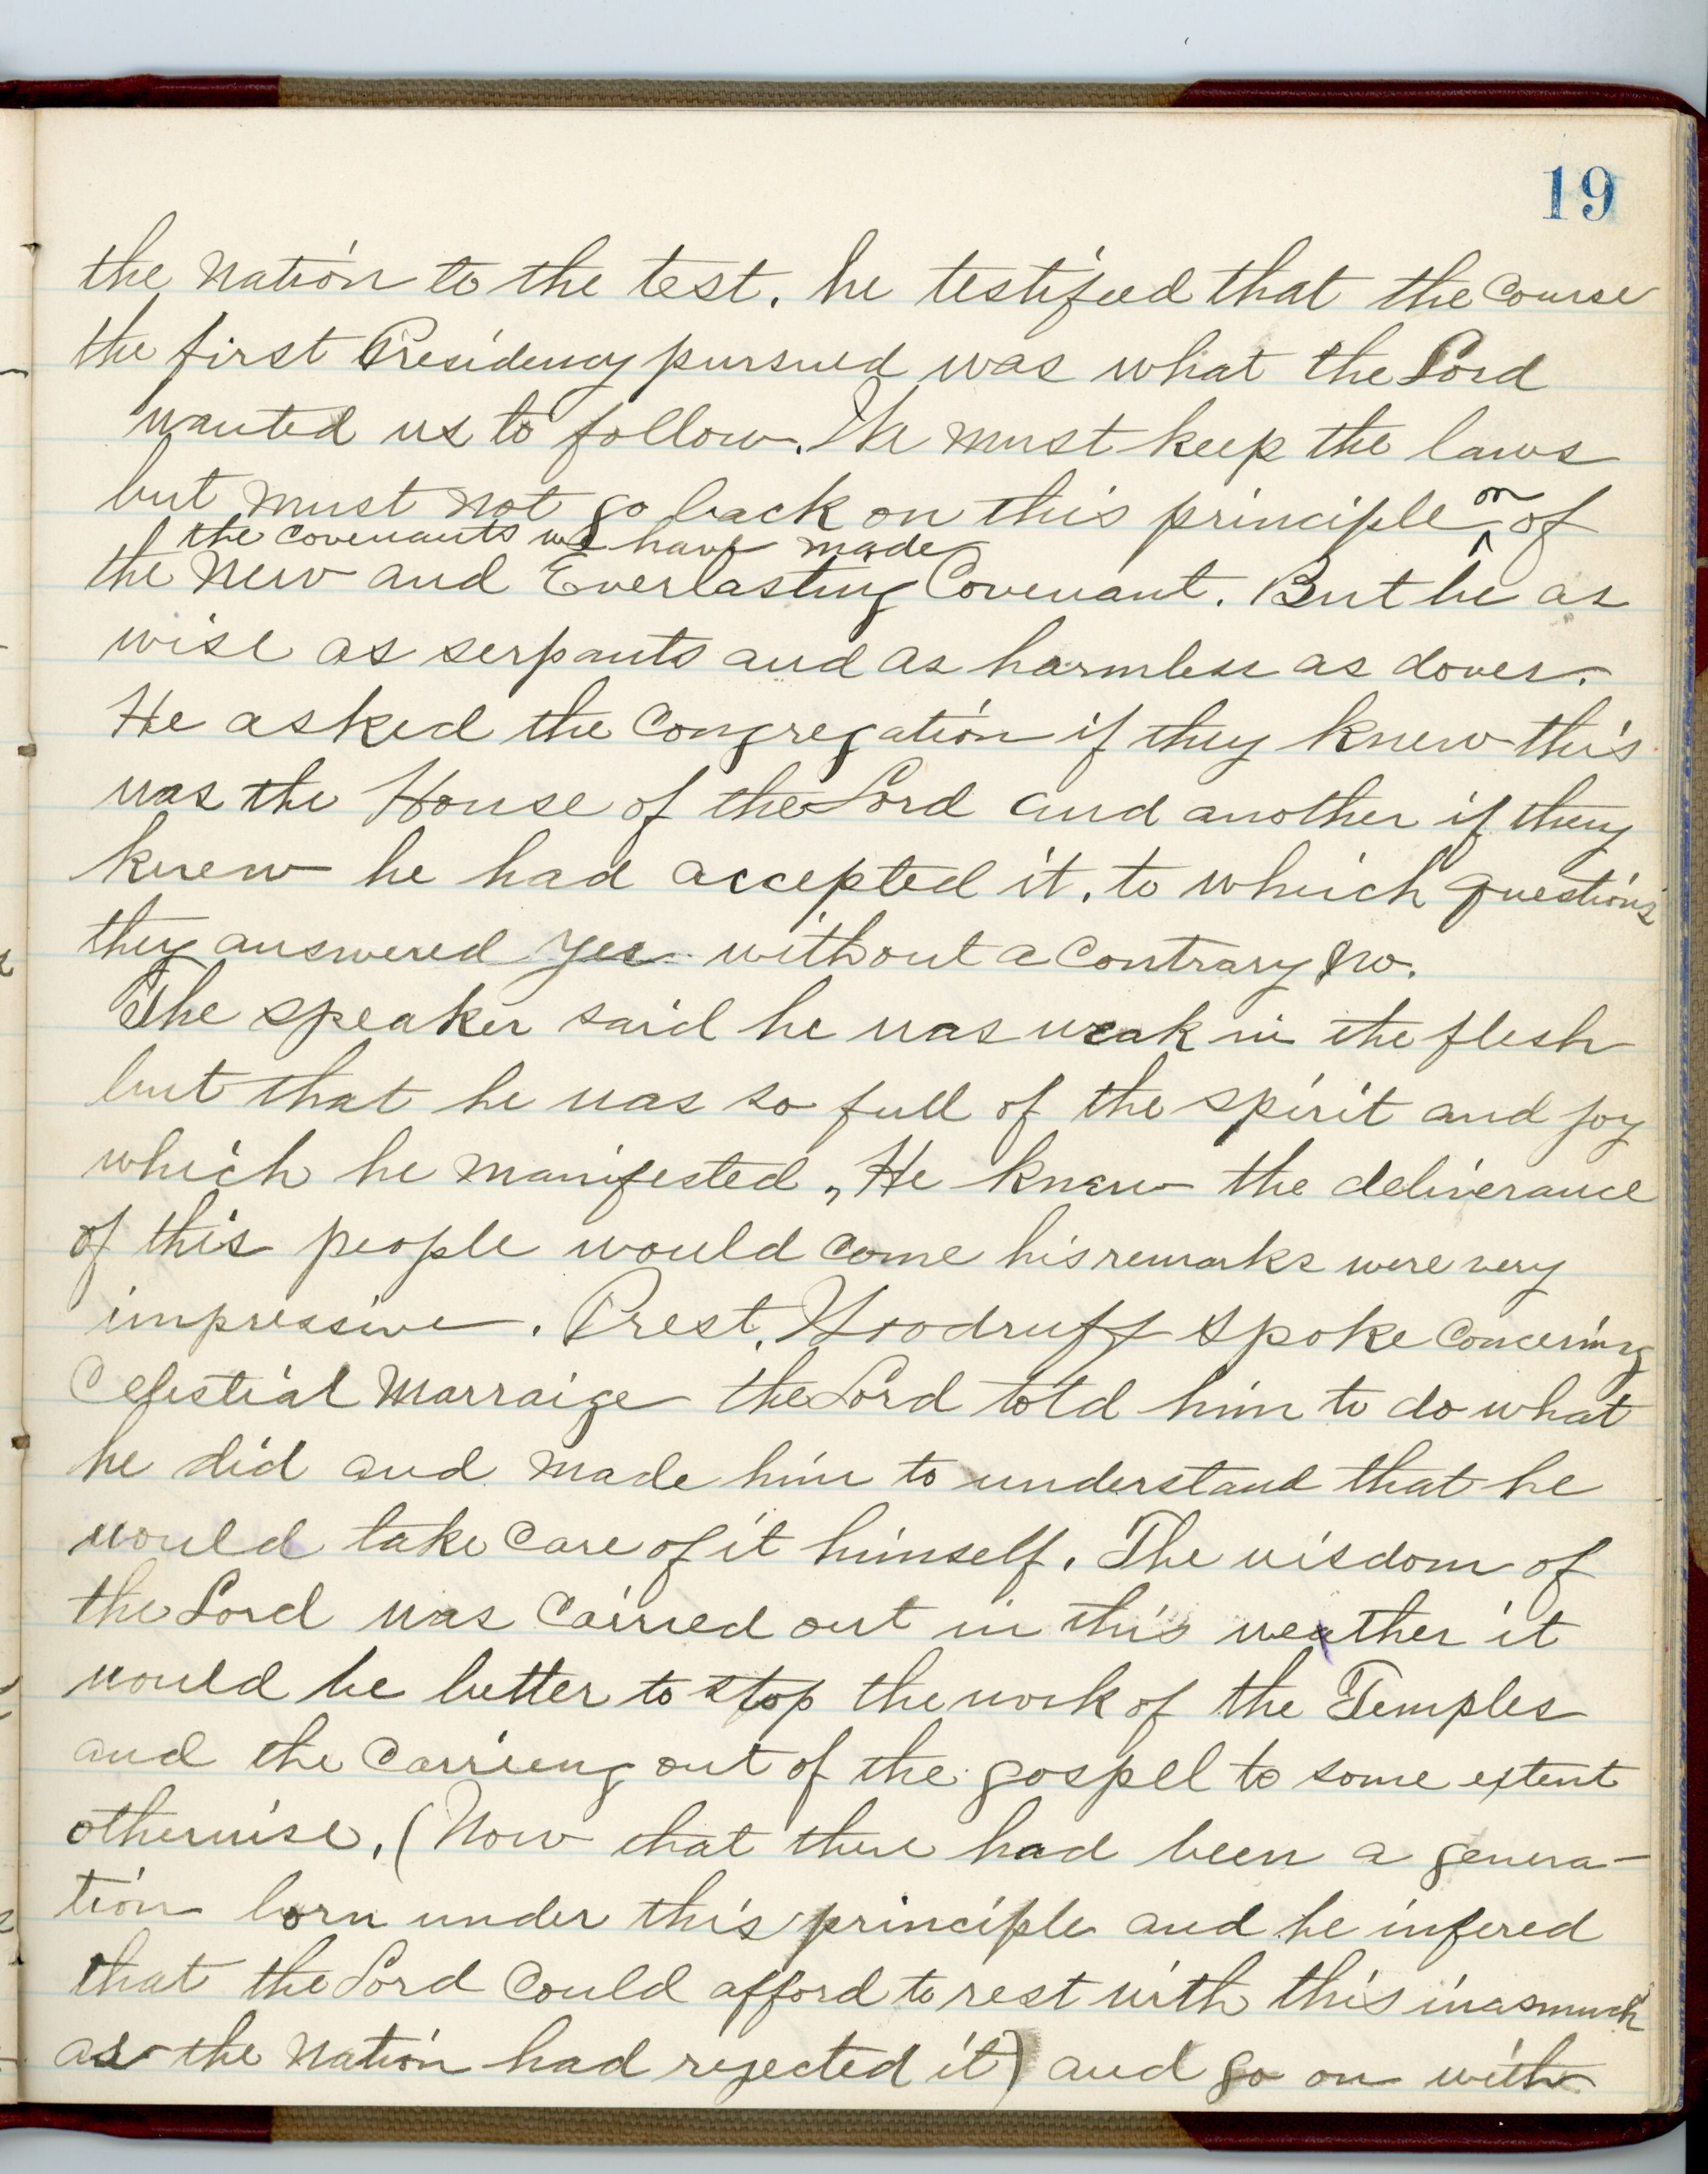 19
the nation to the test. he testifeed that the course
the first Presidency pursued was what the Lord
wanted us to follow. We must keep the laws
but must not go back on this principle or of
the covenants we have made
the New and Everlasting Covenant. But be as
wise as serpants and as harmless as doves.
He asked the Congregation if they knew this
was the House of the Lord and another if they
knew he had accepted it, to which questions
they answered yes without a contrary no.
The speaker said he was weak in the flesh
but that he was so full of the spirit and joy
which he manifested, He knew the deliverance
of this people would come his remarks were very
impressive. Prest. Woodruff spoke concerning
Celestial Marraige the Lord told him to do what
he did and made him to understand that he
would take care of it himself. The wisdom of
the Lord was carried out in this weather it
would be better to stop the work of the Temples
and the carrieng out of the gospel to some extent
otherwise. (Now that there had been a genera-
tion born under this principle and he infered
that the Lord could afford to rest with this inasmuch
as the nation had rejected it) and go on with